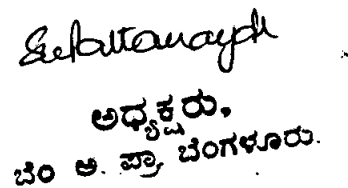 ಅಧ್ಯಕ್ಷರು,
ಬೆಂ ಅ. ಪ್ರಾ, ಬೆಂಗಳೂರು.